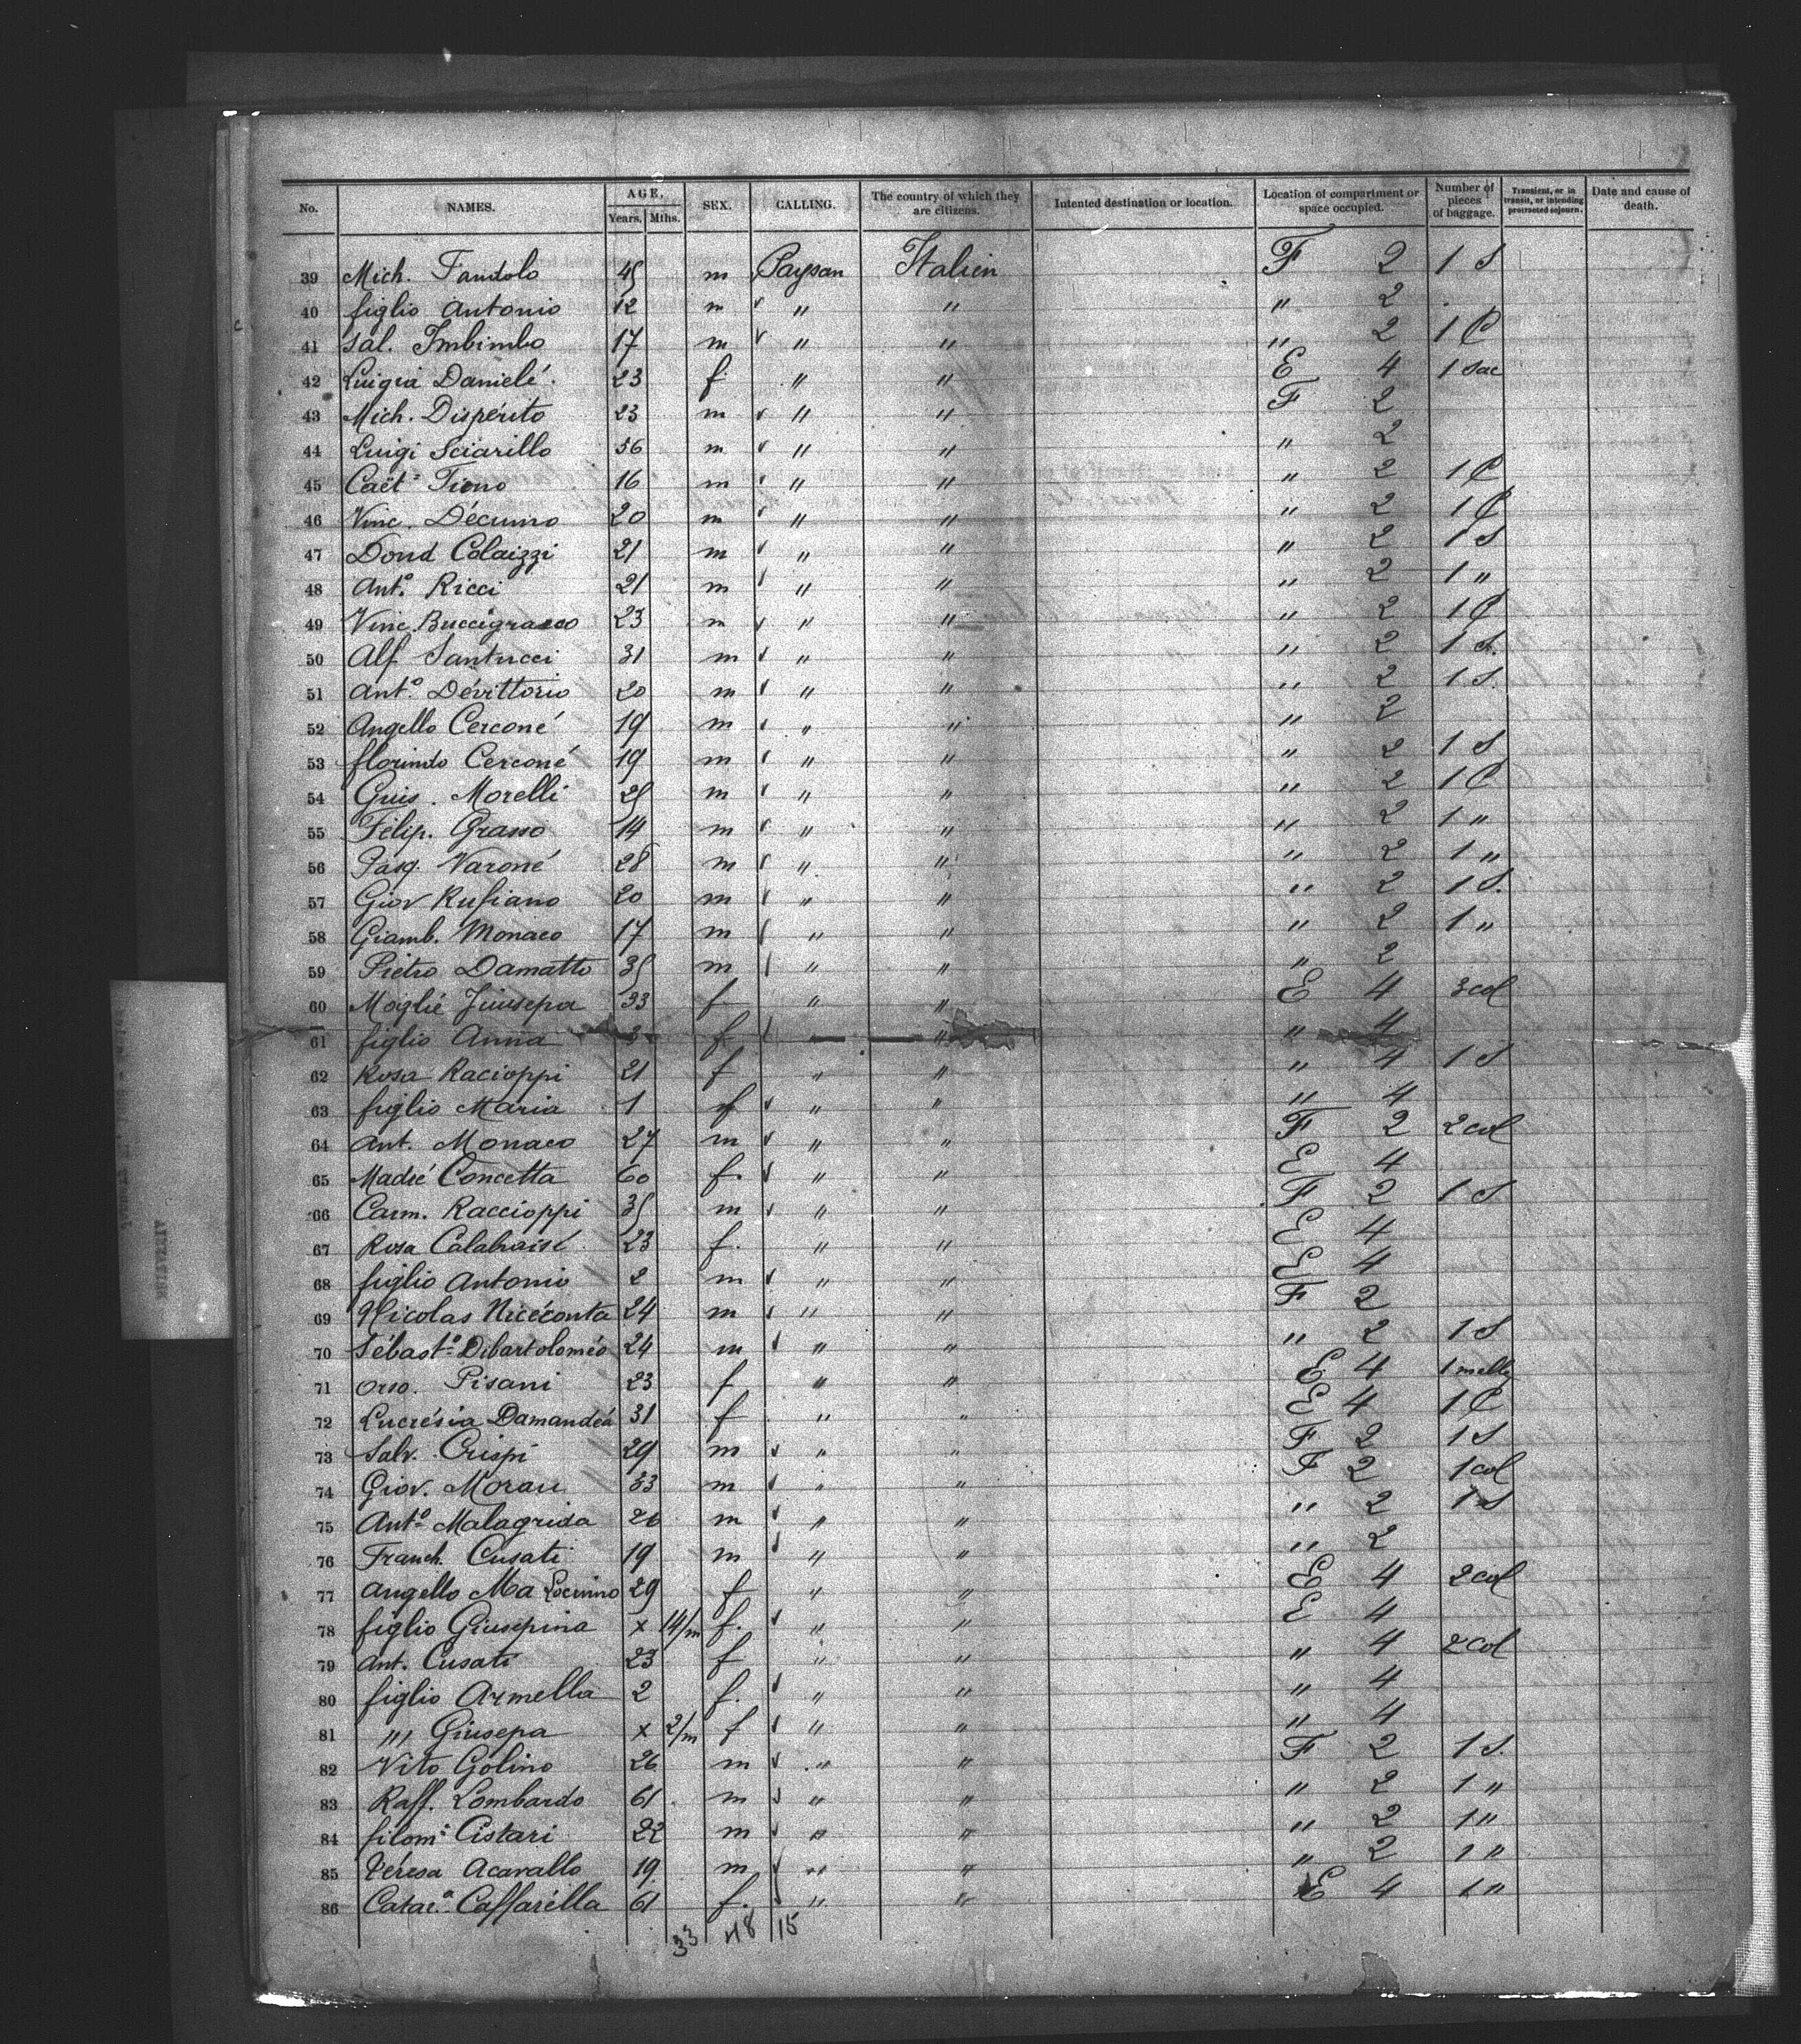 No. NAMES. AGE. Years. Mths. SEX. CALLING. The country of which they are citizens. Intented destination or location. Location of compartment or space occupied. Number of pieces of baggage. Transient, or in transit, or intending protracted sojourn. Date and cause of death.
39 Mich. Fandolo 45 m Paysan Italien F 2 1 S
40 figlio Antonio 12 m " " " 2
41 Sal. Imbimbo 17 m " " " 2 1 C
42 Luigia Danielé 23 f " " E 4 1 sac
43 Mich. Dispérito 23 m " " F 2
44 Luigi Sciarillo 56 m " " " 2
45 Caët° Fiono 16 m " " " 2 1 C
46 Vinc. Décumo 20 m " " " 2 1 C
47 Dond Colaizzi 21 m " " " 2 1 S
48 Ant.° Ricci 21 m " " " 2 1 "
49 Vinc. Buccigrasso 23 m " " " 2 1 C
50 Alf Santucci 31 m " " " 2 1 S.
51 Ant.° Dévittorio 20 m " " " 2 1 S.
52 Angello Cerconé 19 m " " " 2
53 florindo Cerconé 19 m " " " 2 1 S
54 Guis. Morelli 25 m " " " 2 1 C
55 Félip. Grasso 14 m " " " 2 1 "
56 Pasq. Varoné 28 m " " " 2 1 "
57 Giov Rufiano 20 m " " " 2 1 S.
58 Giamb. Monaco 17 m " " " 2 1 "
59 Piétro Damatto 35 m " " " 2
60 Moglié Jiusepa 33 f " " E 4 3 col
61 figlio Anna f " " 4
62 Rosa Racioppi 21 f " " " 4 1 S
63 figlio Maria 1 f " " " 4
64 Ant. Monaco 27 m " " F 2 2 col
65 Madré Concetta 60 f. " " E 4
66 Carm. Raccioppi 35 m " " F 2 1 S
67 Rosa Calabraisé 23 f. " " E 4
68 figlio Antonio 2 m " " E 4
69 Nicolas Nicéconta 24 m " " F 2
70 Sébast° Dibartoloméo 24 m " " " 2 1 S
71 Orso. Pisani 23 f " " E 4 1
72 Lucrésia Damandéa 31 f " " E 4 1 C
73 Salv. Crispi 29 m " " F 2 1 S
74 Giov. Morau 33 m " " F 2 1 col
75 Ant° Malagrida 26 m " " " 2 1 S
76 Franch. Cusati 19 m " " " 2
77 Angello Ma Locunno 29 f " " E 4 2 col
78 figlio Giusépina x 14/m f. " " E 4
79 Ant. Cusati 23 f " " " 4 2 col
80 figlio Armella 2 f. " " " 4
81 " Giusepa x 2/m f " " " 4
82 Vito Golino 26 m " " F 2 1 S.
83 Raff. Lombardo 61 m " " " 2 1 "
84 filom° Cistari 22 m " " " 2 1 "
85 Térésa Acavallo 19 m " " " 2 1 "
86 Catar.ª Caffarélla 61 f. " " E 4 1 "
33 48 15